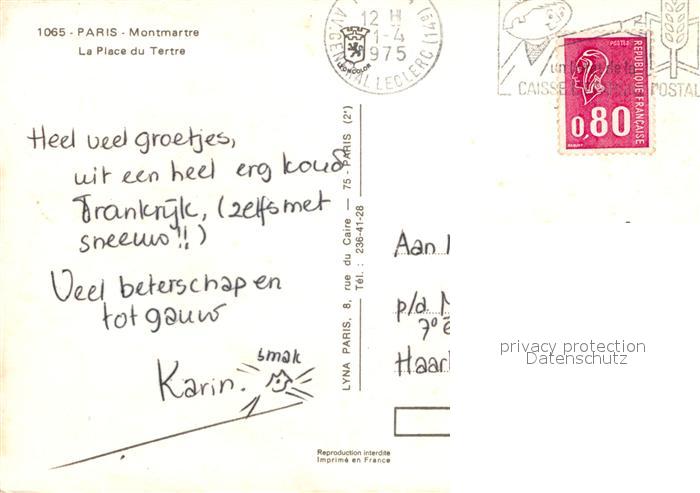 1065 - PARIS - Montmartre
La Place du Tertre
12 H
1-4
1975
AV. GENERAL LECLERC (14e)
CAISSE POSTAL
POSTES
REPUBLIQUE FRANÇAISE
0,80
Heel veel groetjes,
uit een heel erg koud
Frankrijk, (zelfs met
sneeuw!!)
Veel beterschap en
tot gauw
smak
Karin.
LYNA PARIS, 8, rue du Caire — 75 - PARIS (2e)
Tél. : 236-41-28
Aan
p/a
7e
Haarl
privacy protection
Datenschutz
Reproduction interdite
Imprimé en France